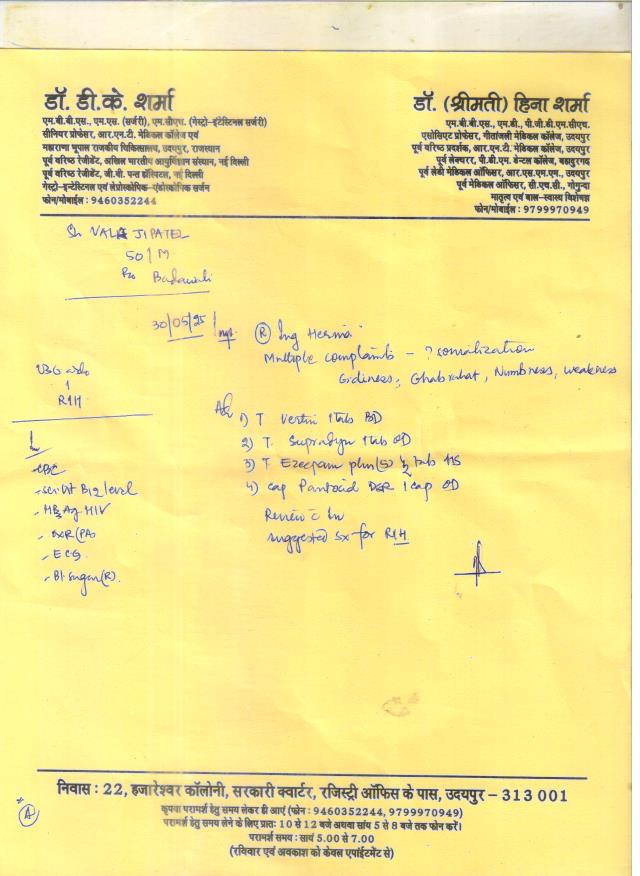 डॉ. डी.के. शर्मा
एम.बी.बी.एस., एम.एस. (सर्जरी), एम.सीएच. (गेस्ट्रो-इंटेस्टिनल सर्जरी)
सीनियर प्रोफेसर, आर.एन.टी. मेडिकल कॉलेज एवं
महाराणा भूपाल राजकीय चिकित्सालय, उदयपुर, राजस्थान
पूर्व वरिष्ठ रेजीडेंट, अखिल भारतीय आयुर्विज्ञान संस्थान, नई दिल्ली
पूर्व वरिष्ठ रेजीडेंट, जी.वी. पन्त हॉस्पिटल, नई दिल्ली
गेस्ट्रो-इन्टेस्टिनल एवं लेप्रोस्कोपिक-एंडोस्कोपिक सर्जन
फोन/मोबाईल : 9460352244
डॉ. (श्रीमती) हिना शर्मा
एम.बी.बी.एस., एम.डी., पी.जी.डी.एम.सीएच.
एसोसिएट प्रोफेसर, गीतांजली मेडिकल कॉलेज, उदयपुर
पूर्व वरिष्ठ प्रदर्शक, आर.एन.टी. मेडिकल कॉलेज, उदयपुर
पूर्व लेक्चरर, पी.डी.एम. डेन्टल कॉलेज, बहादुरगढ
पूर्व लेडी मेडिकल ऑफिसर, आर.एस.एम.एम., उदयपुर
पूर्व मेडिकल ऑफिसर, सी.एच.सी., गोगुन्दा
मातृत्व एवं बाल-स्वास्थ्य विशेषज्ञ
फोन/मोबाईल : 9799970949
JI PATEL
50/M
R/o Badawali
30/05/25
(R) Ing Hernia
Multiple complaints - ? somalization
Gidiness, Ghabrahat, Numbness, weakness
USG
RIH
Adv
1) T Vertin 1 tab BD
2) T. Supradyn 1 tab OD
3) T Ezeepam plus(5) ½ tab HS
4) cap Pantocid DSR 1 cap OD
Review c
suggested Sx for RIH
- CBC
- B12 level
- HBsAg HIV
- CXR (PA)
- ECG.
- Bl. Sugar (R).
(A)
निवास : 22, हजारेश्वर कॉलोनी, सरकारी क्वार्टर, रजिस्ट्री ऑफिस के पास, उदयपुर - 313 001
कृपया परामर्श हेतु समय लेकर ही आएं (फोन : 9460352244, 9799970949)
परामर्श हेतु समय लेने के लिए प्रातः 10 से 12 बजे अथवा सांय 5 से 8 बजे तक फोन करें।
परामर्श समय : सायं 5.00 से 7.00
(रविवार एवं अवकाश को केवल एपाईंटमेंट से)